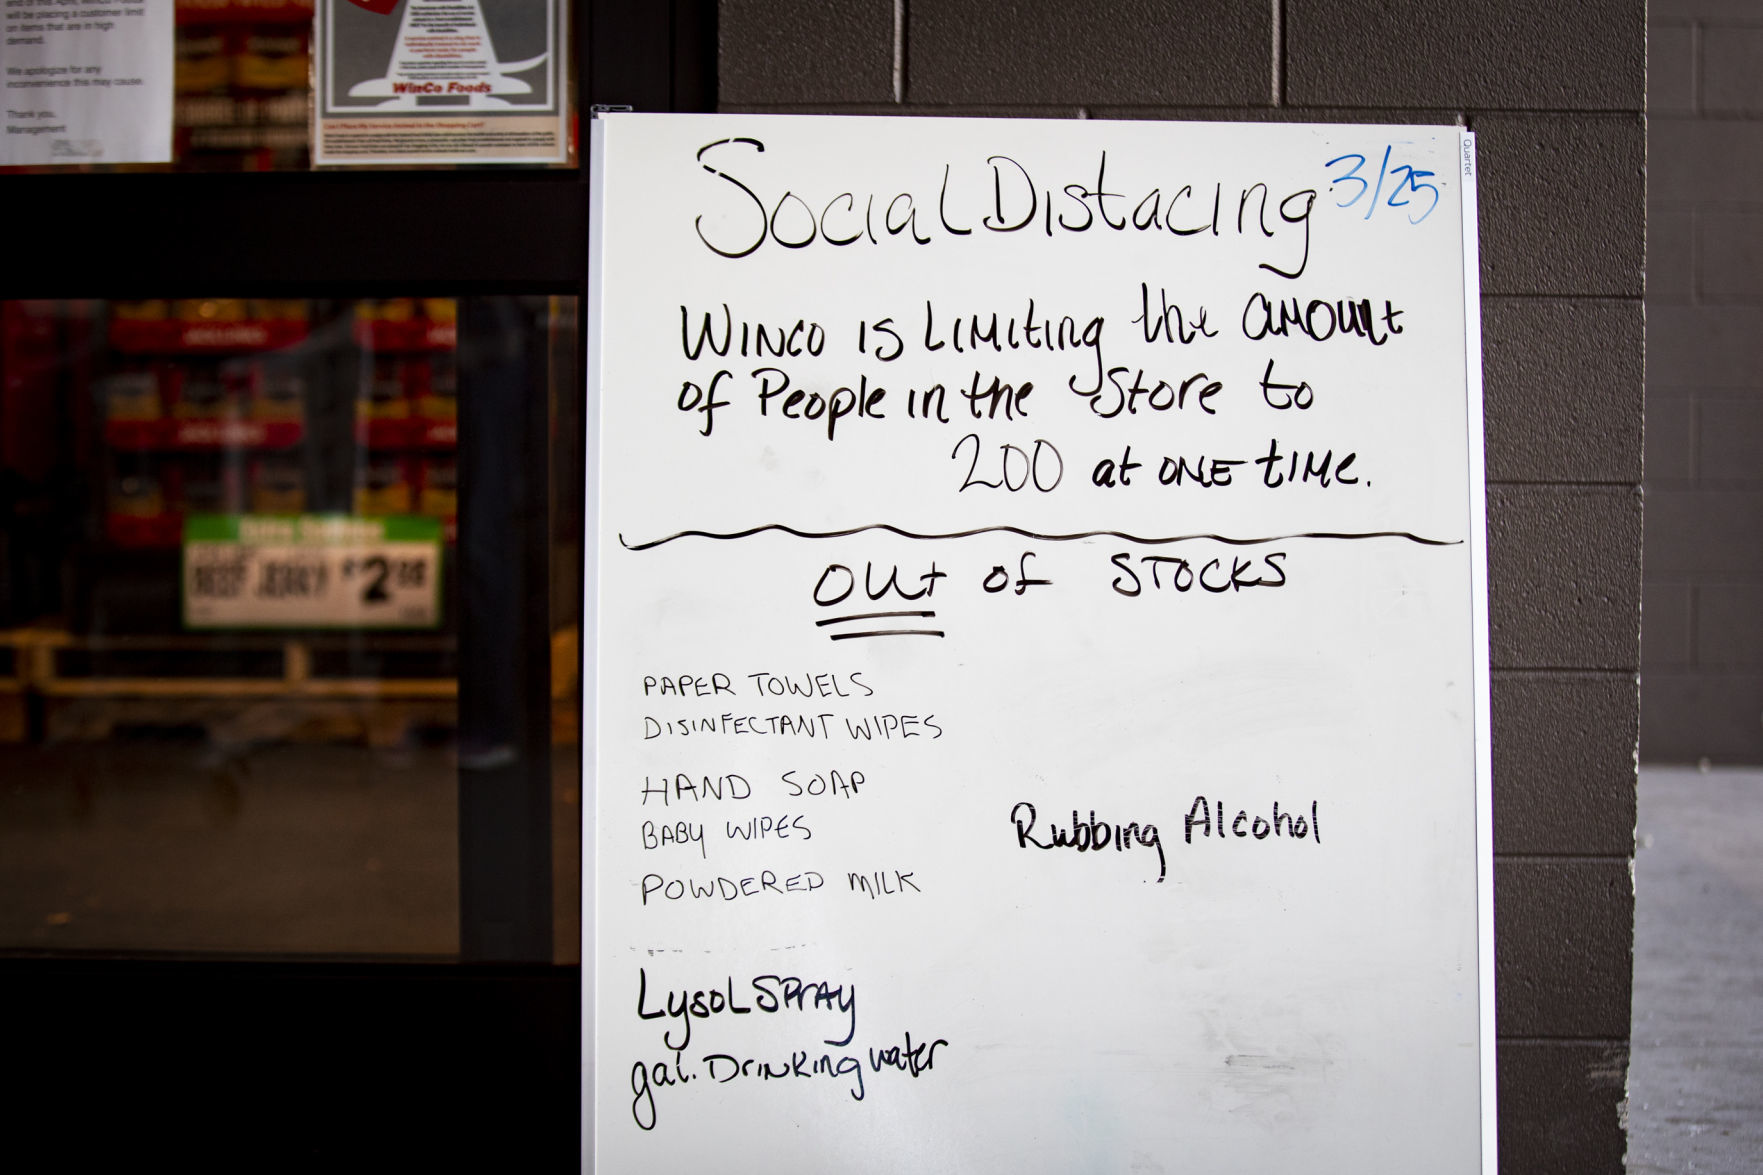 will be placing a customer limit
on items that are in high
demand.
We apologize for any
inconvenience this may cause.
Thank you,
Management
WinCo Foods
Can I Place My Service Animal in the Shopping Cart?
BEEF JERKY $2
Quartet
Social Distacing 3/25
WINCO IS LIMITING the AMOUNT
of People in the Store to
200 at ONE TIME.
OUT OF STOCKS
PAPER TOWELS
DISINFECTANT WIPES
HAND SOAP
BABY WIPES
Rubbing Alcohol
POWDERED MILK
Lysol SPRAY
gal. Drinking water